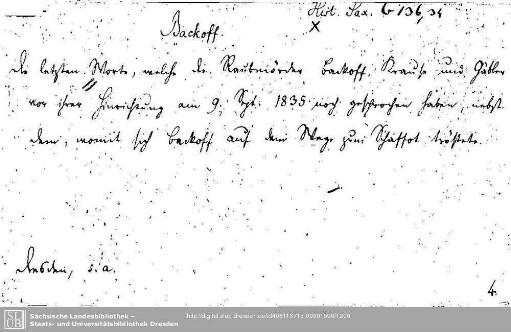 Hist. Sax. G 136, 34
x
Backoff.
Die letzten Worte, welche die Raubmörder Backoff, Krause und Gäbler
vor ihrer Hinrichtung am 9. Spt. 1835 noch gesprochen haben, nebst
dem, womit sich Backoff auf dem Wege zum Schaffot tröstete.
Dresden, s. a.
4.
SLUB
Sächsische Landesbibliothek –
Staats- und Universitätsbibliothek Dresden